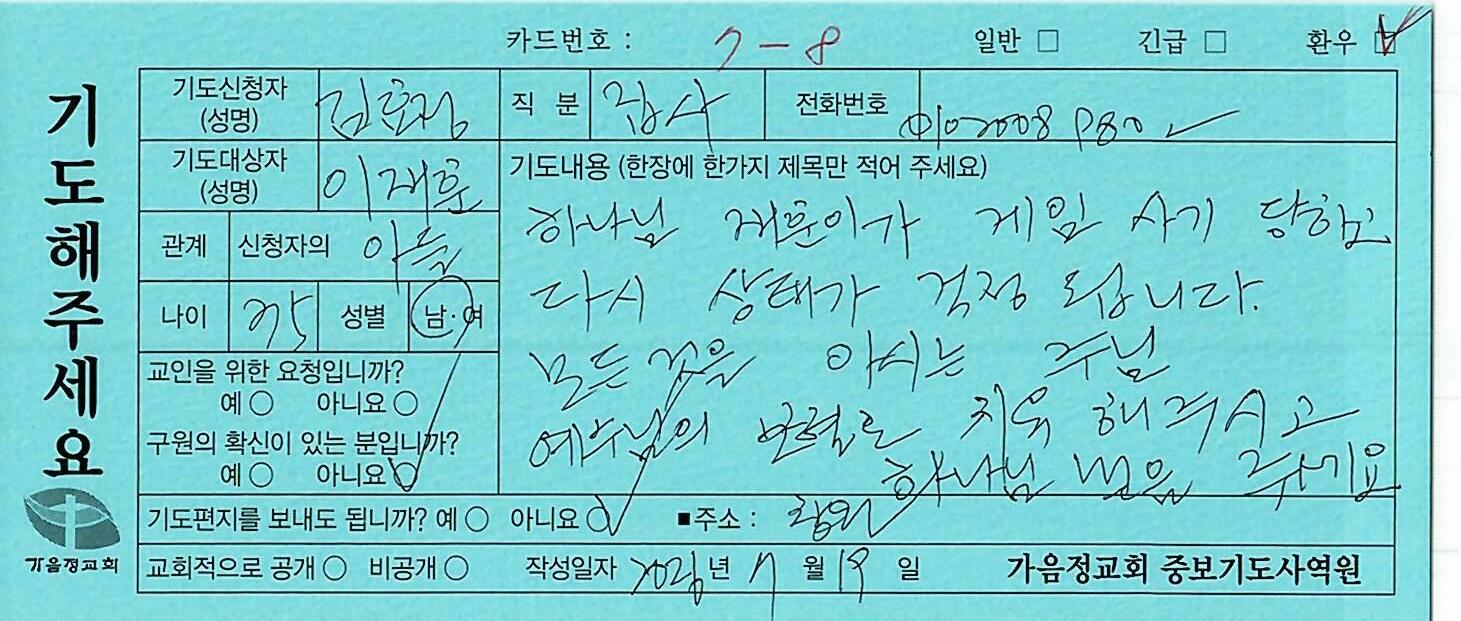 카드번호 : 7-8 일반 □ 긴급 □ 환우 □
기도해주세요
기도신청자 (성명) 김효정 직 분 집사 전화번호
기도대상자 (성명) 이재훈
관계 신청자의 아들
나이 성별 남·여
기도내용 (한장에 한가지 제목만 적어 주세요)
하나님 재훈이가 게임 사기 당하고
다시 상태가 걱정 됩니다.
모든 것을 아시는 주님
예수님의 보혈로 치유 해주시고
하나님 믿음 주시기요
교인을 위한 요청입니까?
예 ○ 아니요 ○
구원의 확신이 있는 분입니까?
예 ○ 아니요 ○
기도편지를 보내도 됩니까? 예 ○ 아니요 ○ ■주소 : 창원
교회적으로 공개 ○ 비공개 ○ 작성일자 년 7 월 19 일 가음정교회 중보기도사역원
가음정교회